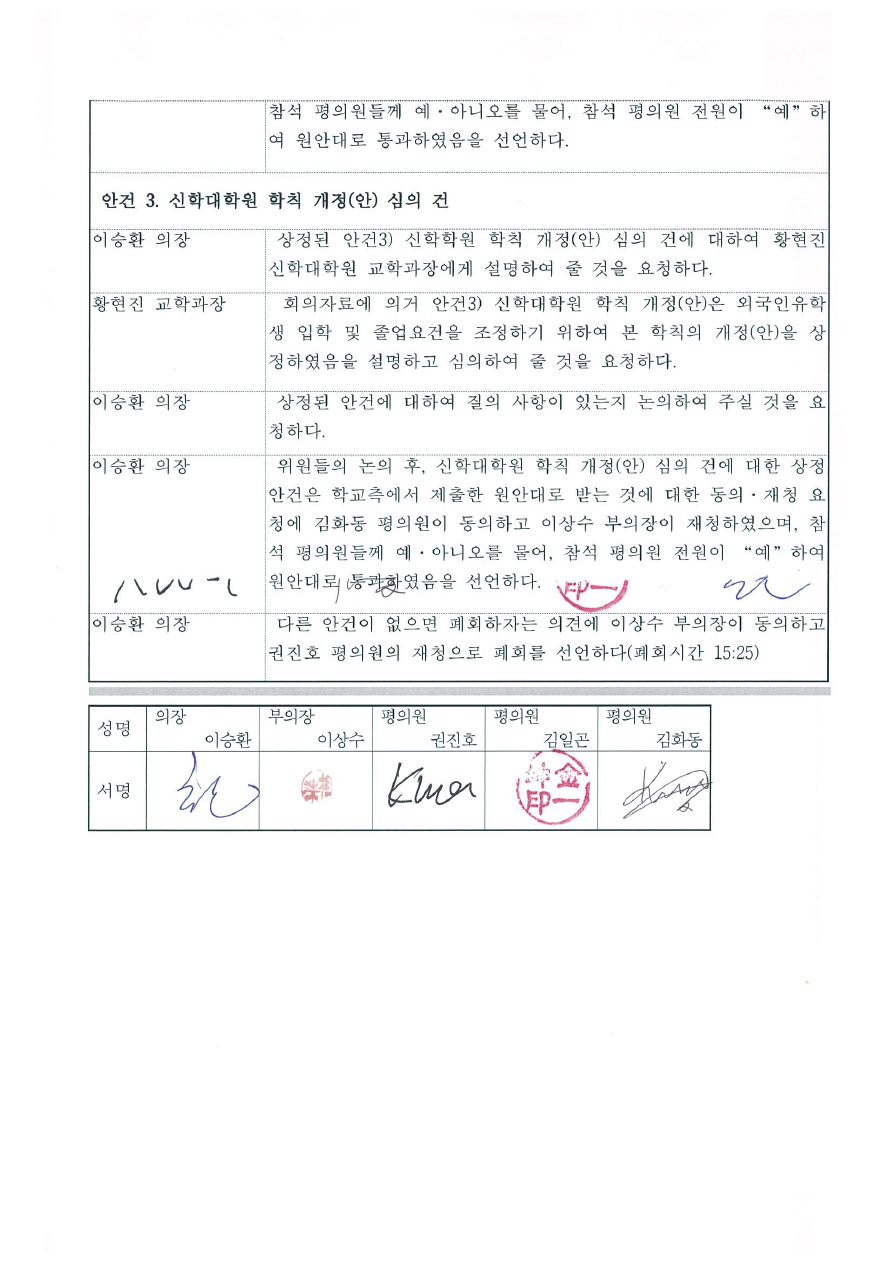 참석 평의원들께 예·아니오를 물어, 참석 평의원 전원이 “예” 하
여 원안대로 통과하였음을 선언하다.
안건 3. 신학대학원 학칙 개정(안) 심의 건
이승환 의장
상정된 안건3) 신학학원 학칙 개정(안) 심의 건에 대하여 황현진
신학대학원 교학과장에게 설명하여 줄 것을 요청하다.
황현진 교학과장
회의자료에 의거 안건3) 신학대학원 학칙 개정(안)은 외국인유학
생 입학 및 졸업요건을 조정하기 위하여 본 학칙의 개정(안)을 상
정하였음을 설명하고 심의하여 줄 것을 요청하다.
이승환 의장
상정된 안건에 대하여 질의 사항이 있는지 논의하여 주실 것을 요
청하다.
이승환 의장
위원들의 논의 후, 신학대학원 학칙 개정(안) 심의 건에 대한 상정
안건은 학교측에서 제출한 원안대로 받는 것에 대한 동의·재청 요
청에 김화동 평의원이 동의하고 이상수 부의장이 재청하였으며, 참
석 평의원들께 예·아니오를 물어, 참석 평의원 전원이 “예” 하여
원안대로 통과하였음을 선언하다.
이승환 의장
다른 안건이 없으면 폐회하자는 의견에 이상수 부의장이 동의하고
권진호 평의원의 재청으로 폐회를 선언하다(폐회시간 15:25)
성명
의장
이승환
부의장
이상수
평의원
권진호
평의원
김일곤
평의원
김화동
서명